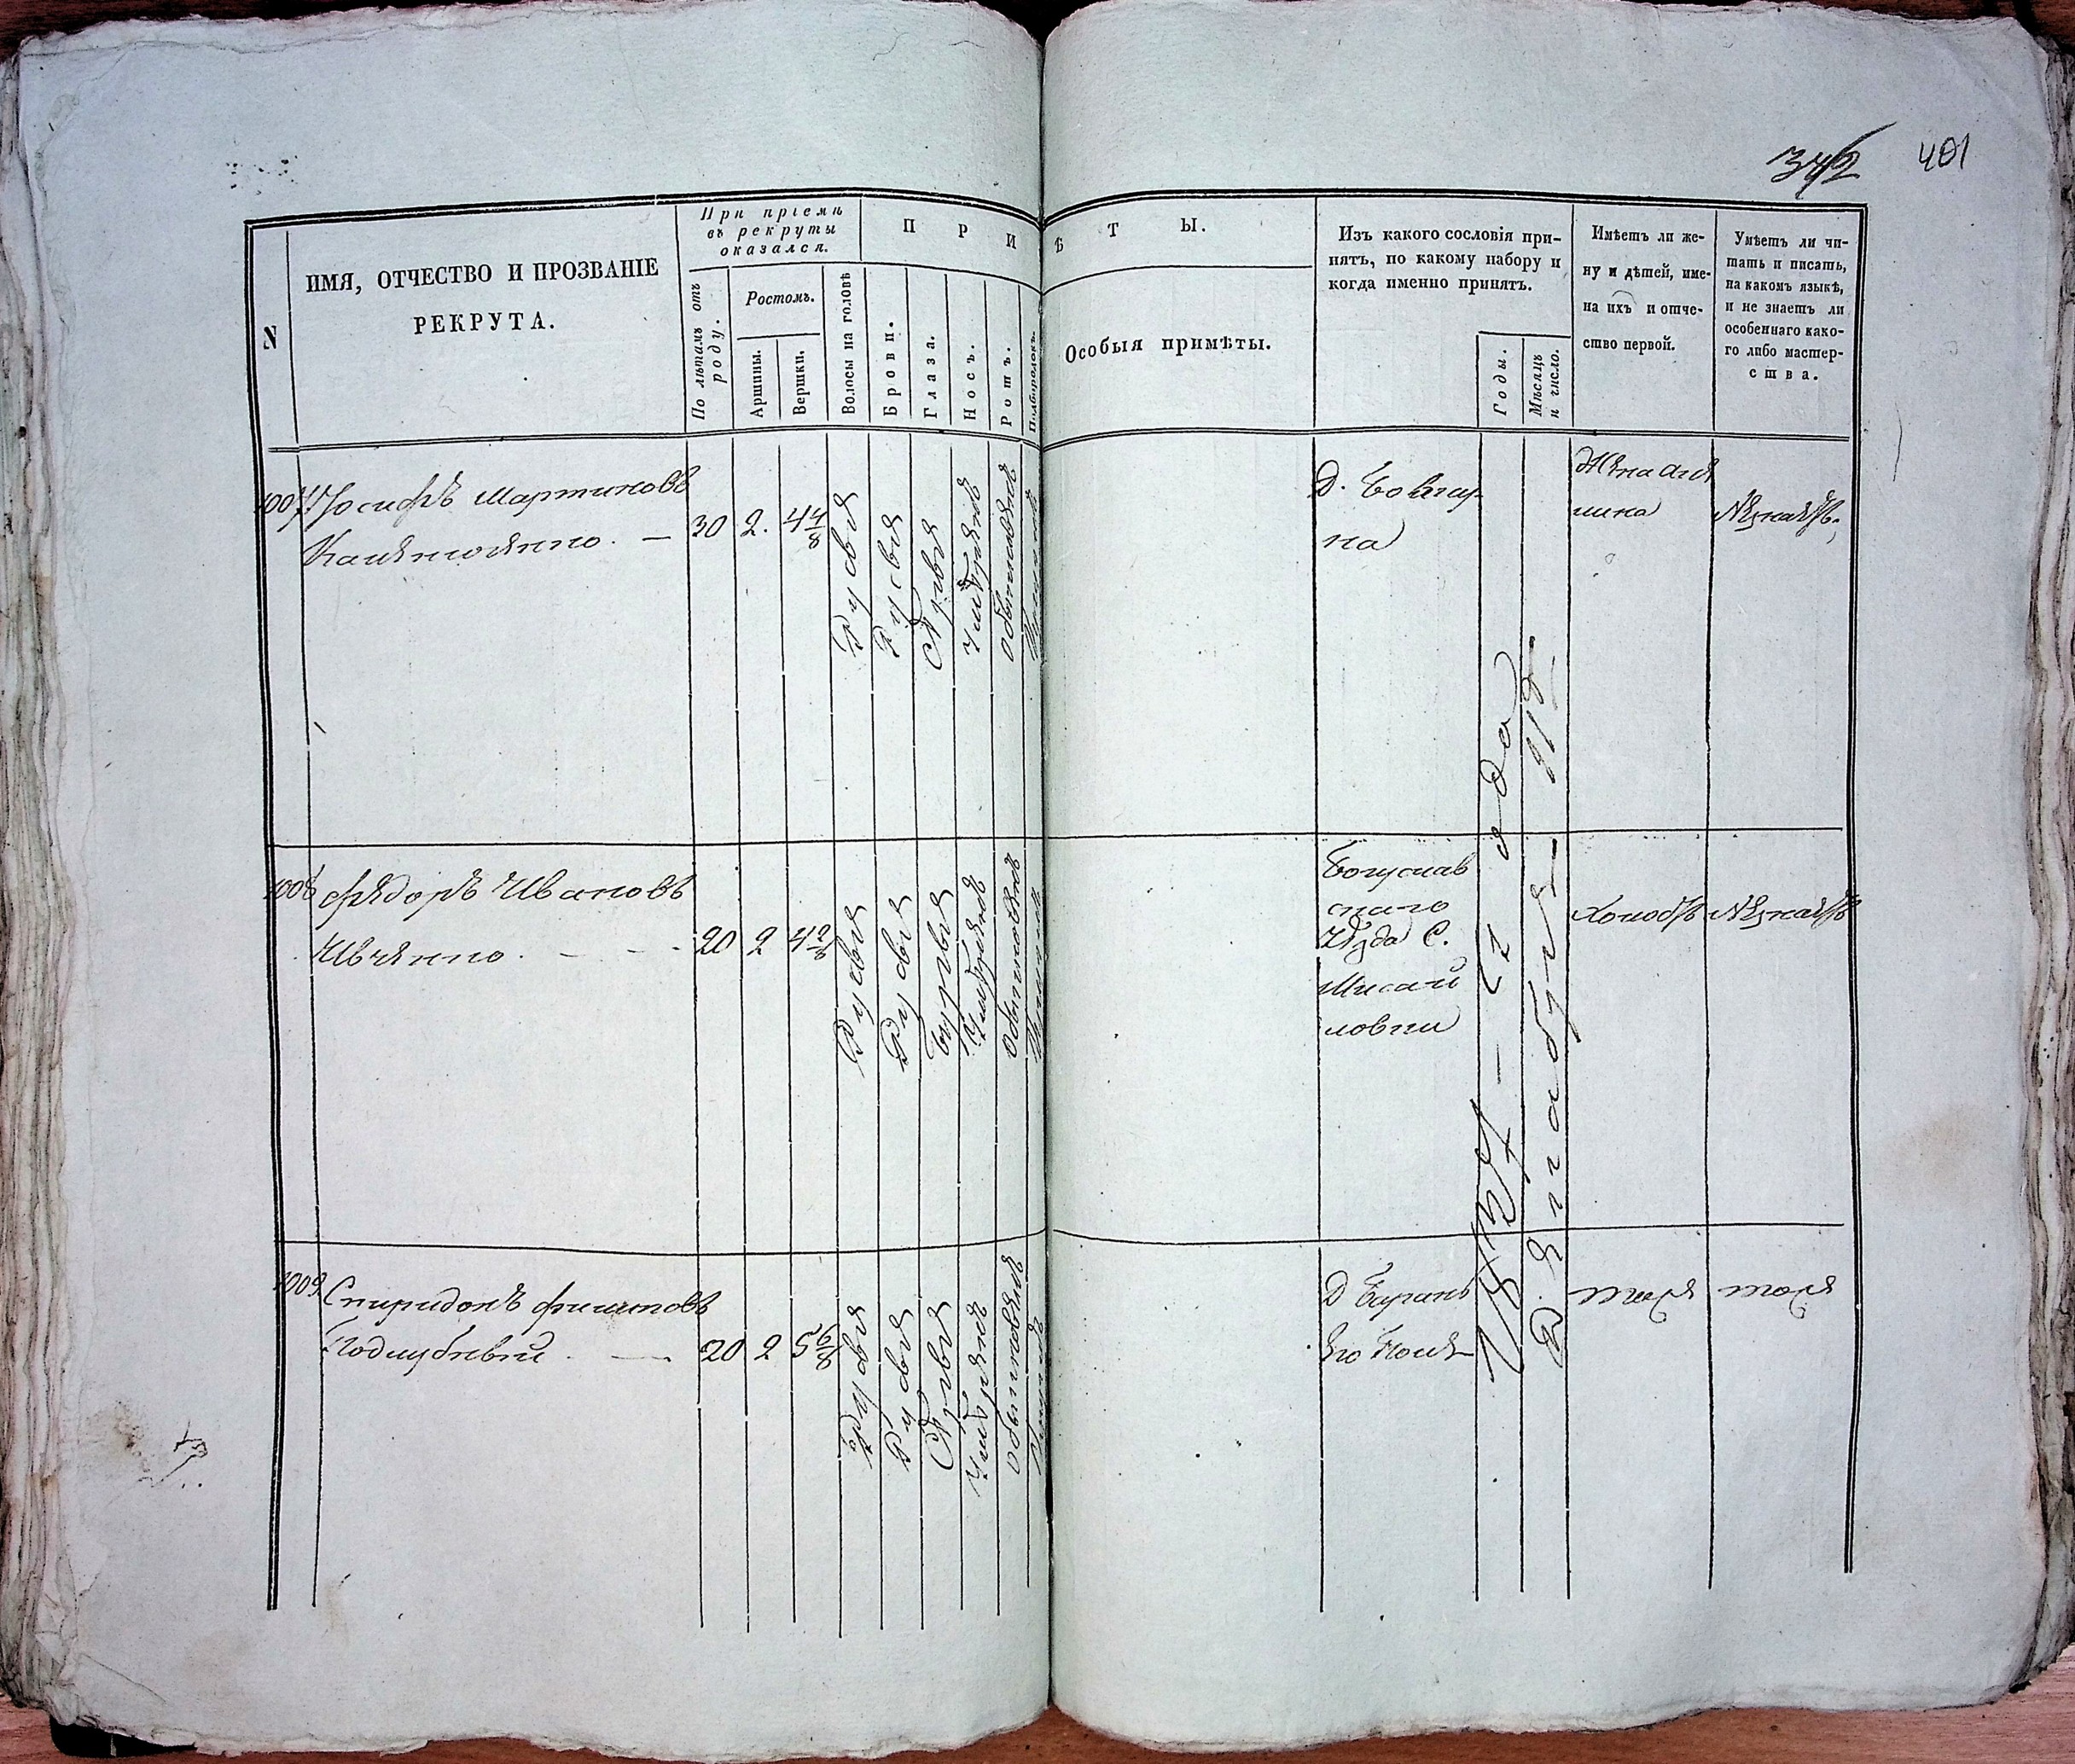 342 401
N
ИМЯ, ОТЧЕСТВО И ПРОЗВАНІЕ
РЕКРУТА.
При пріемѣ
въ рекруты
оказался.
По лѣтамъ отъ
роду.
Ростомъ.
Аршины.
Вершки.
П Р И
Волосы на головѣ
Брови.
Глаза.
Носъ.
Ротъ.
Подбородокъ.
Ѣ Т Ы.
Особыя примѣты.
Изъ какого сословія при-
нятъ, по какому набору и
когда именно принятъ.
Годы.
Мѣсяцъ
и число.
Имѣетъ ли же-
ну и дѣтей, име-
на ихъ и отче-
ство первой.
Умѣетъ ли чи-
тать и писать,
на какомъ языкѣ,
и не знаетъ ли
особеннаго како-
го либо мастер-
ства.
1007 Іосифъ Мартиновъ
30 2. 4 4/8
Русыя
Русыя
Сѣрыя
Умѣренъ
обыкновенъ
Д. Ковшар
на
Жена
Незнаетъ
1008 Федоръ Ивановъ
Ивченко. 20 2 4 2/8
Русыя
Русыя
Умѣренъ
обыкновенъ
Богуслав
скаго
Уѣзда С.
Мисай
ловки
Холостъ Незнаетъ
1837 — го года
Декабря 11го
1009. Спиридонъ Филиповъ
Подлубный 20 2 5 6/8
Русыя
Русыя
Сѣрыя
Умѣренъ
обыкновенъ
Д
его Поле
тоже тоже